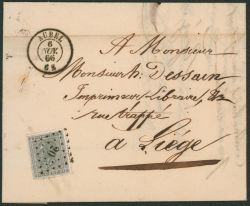 AUBEL
6
66
A Monsieur
Monsieur h. Dessain
Imprimeur-Libraire, &a
rue trappé
à Liége